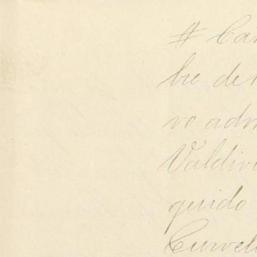 # Car
bre de
vo adm
Valdivi
quido
Curvel